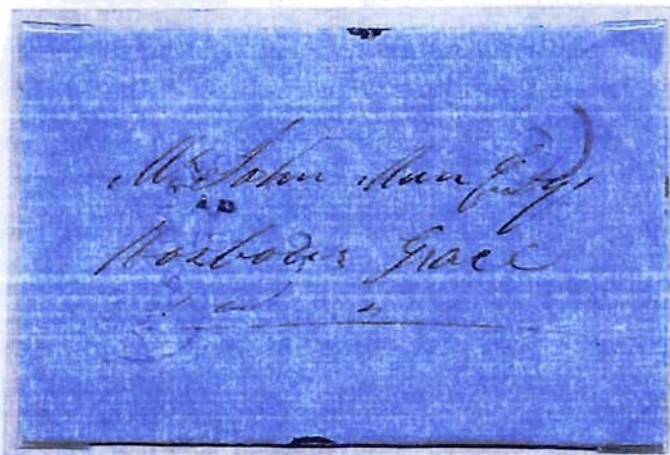 Mr John Munn Esqr
Harbour Grace